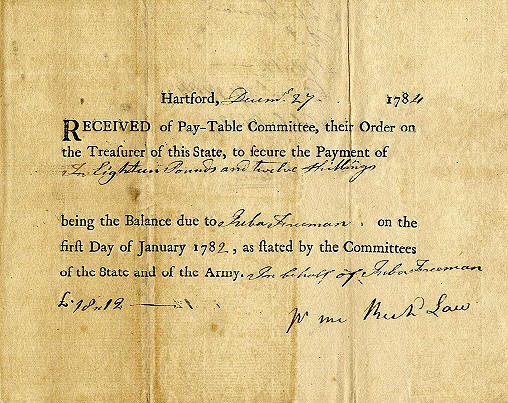 Hartford, Decemr. 27 1784
RECEIVED of Pay-Table Committee, their Order on
the Treasurer of this State, to secure the Payment of
Eighteen Pounds and twelve shillings
being the Balance due to Juba Freeman on the
first Day of January 1782, as stated by the Committees
of the State and of the Army. In behalf of Juba Freeman
£18 „ 12
pr me Richd Law